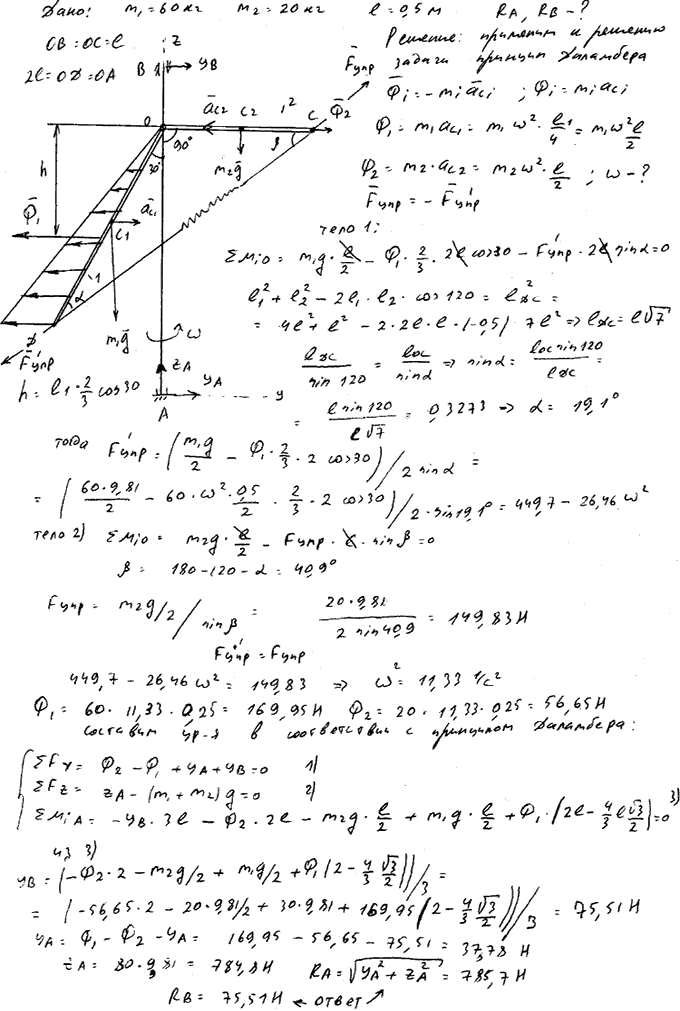 Дано: m₁=60кг m₂=20кг l=0,5м RA, RB-?
OB=OC=l
2l=OD=OA
Решение: применим к решению
задачи принцип Даламбера
Φ̄i=-mi āci ; Φi=mi aci
Φ₁=m₁ac₁=m₁ω²·l/4=m₁ω²l/2
Φ₂=m₂·ac₂=m₂ω²·l/2 ; ω-?
F̄упр=-F̄'упр
z
B yB
F̄упр
āc2 C2 1² C Φ̄2
O
90°
30°
m₂ḡ
β
h
Φ̄₁
āc1
C1
1
α
D
m₁ḡ
F̄'упр
ω
zA
yA y
A
h=l₁·2/3 cos30
тело 1:
ΣMiO=m₁g·l/2-Φ₁·2/3·2l cos30-F'упр·2l sinα=0
l₁²+l₂²-2l₁·l₂·cos120=l²DC=
=4l²+l²-2·2l·l·(-0,5) 7l² => lDC=l√7
lDC/sin120=lOC/sinα => sinα=lOC sin120/lDC=
=l sin120/l√7=0,3273 => α=19,1°
тогда F'упр=(m₁g/2-Φ₁·2/3·2 cos30)/2 sinα=
=(60·9,81/2-60·ω²·0,5/2·2/3·2 cos30)/2·sin19,1°=449,7-26,46ω²
тело 2) ΣMiO=m₂g·l/2-Fупр·l·sinβ=0
β=180-120-α=40,9°
Fупр=m₂g/2/sinβ=20·9,81/2 sin40,9=149,83Н
F'упр=Fупр
449,7-26,46ω²=149,83 => ω²=11,33 1/с²
Φ₁=60·11,33·0,25=169,95Н Φ₂=20·11,33·0,25=56,65Н
составим ур-я в соответствии с принципом Даламбера:
ΣFy=Φ₂-Φ₁+yA+yB=0 1)
ΣFz=zA-(m₁+m₂)g=0 2)
ΣMiA=-yB·3l-Φ₂·2l-m₂g·l/2+m₁g·l/2+Φ₁·(2l-4/3 l√3/2)=0 3)
из 3)
yB=(-Φ₂·2-m₂g/2+m₁g/2+Φ₁(2-4/3 √3/2))/3=
=(-56,65·2-20·9,81/2+30·9,81+169,95(2-4/3 √3/2))/3=75,51Н
yA=Φ₁-Φ₂-yA=169,95-56,65-75,51=37,78 Н
zA=80·9,81=784,8Н RA=√yA²+zA²=785,7Н
RB=75,51Н ← ответ